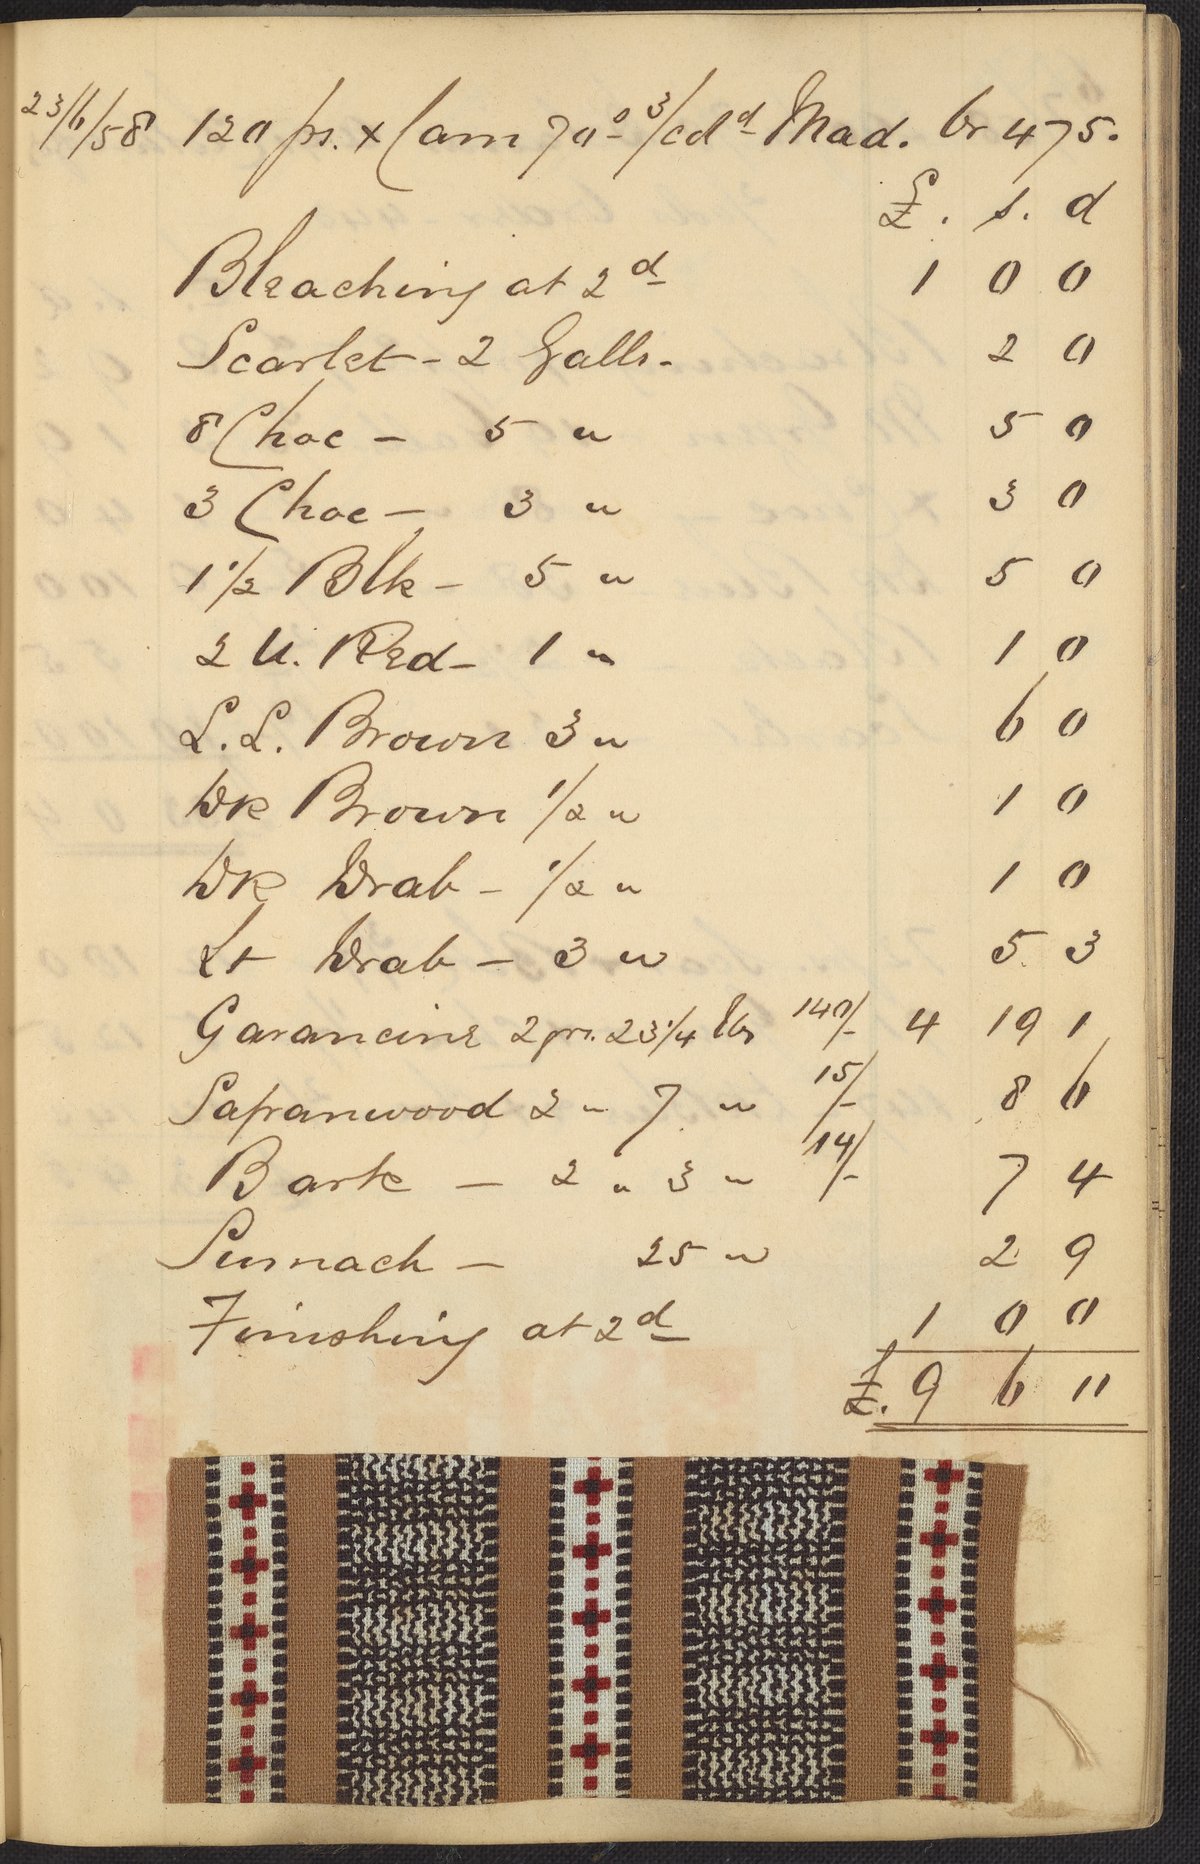 23/6/58 120 ps. x Cam 70° 3/cdd Mad. br 475.
£. s. d
Bleaching at 2d 1 0 0
Scarlet - 2 Galls. 2 0
8 Choc - 5 " 5 0
3 Choc - 3 " 3 0
1 1/2 Blk - 5 " 5 0
2 U. Red - 1 " 1 0
L. L. Brown 3 " 6 0
Dk Brown 1/2 " 1 0
Dk Drab - 1/2 " 1 0
Lt Drab - 3 " 5 3
Garancine 2 prs. 23 1/4 lbs 140/- 4 19 1
Sapanwood 2 " 7 " 15/- 8 6
Bark - 2 " 3 " 14/- 7 4
Sumach - 25 " 2 9
Finishing at 2d 1 0 0
£. 9 6 11